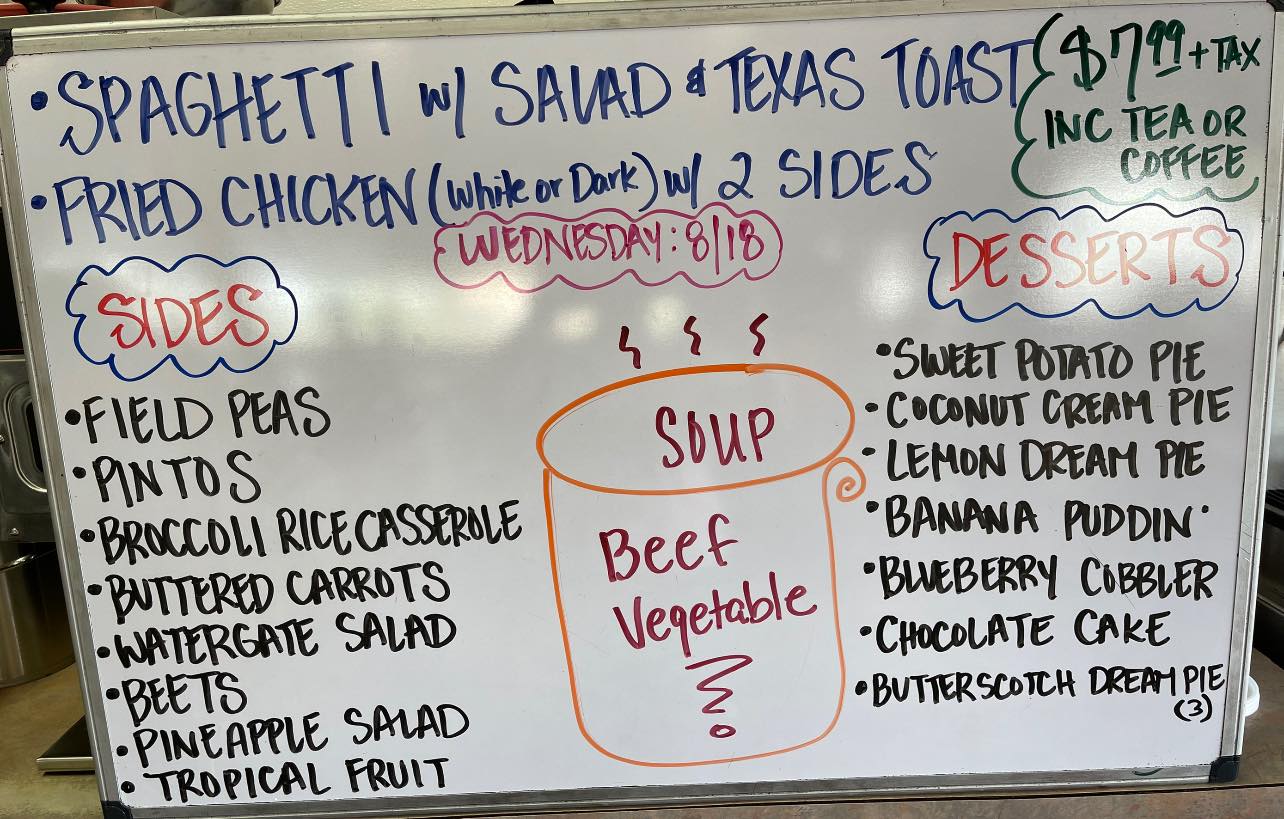 • SPAGHETTI w/ SALAD & TEXAS TOAST
• FRIED CHICKEN (White or Dark) w/ 2 SIDES
$7.99 + TAX
INC TEA OR
COFFEE
WEDNESDAY: 8/18
SIDES
• FIELD PEAS
• PINTOS
• BROCCOLI RICE CASSEROLE
• BUTTERED CARROTS
• WATERGATE SALAD
• BEETS
• PINEAPPLE SALAD
• TROPICAL FRUIT
SOUP
Beef
Vegetable
DESSERTS
• SWEET POTATO PIE
• COCONUT CREAM PIE
• LEMON DREAM PIE
• BANANA PUDDIN'
• BLUEBERRY COBBLER
• CHOCOLATE CAKE
• BUTTERSCOTCH DREAM PIE
(3)